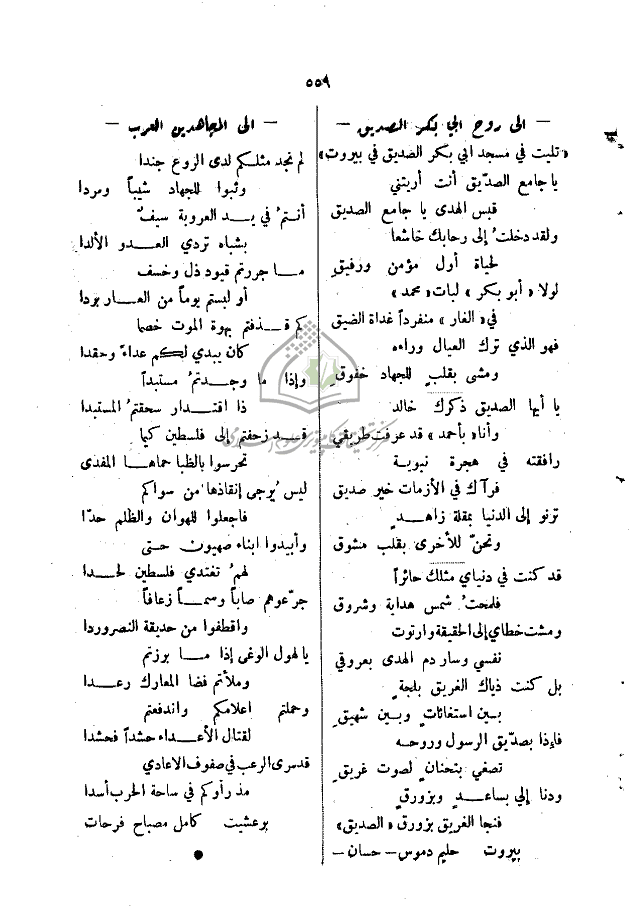 ٥٥٩
— الى روح ابي بكر الصديق —
«تليت في مسجد ابي بكر الصديق في بيروت»
يا جامع الصدّيق أنت أريتني
قبس الهدى يا جامع الصديق
ولقد دخلتُ إلى رحابك خاشعا
لحياة أول مؤمن ورفيق
لولا «أبو بكر» لبات «محمد»
في «الغار» منفرداً غداة الضيق
فهو الذي ترك العيال وراءه
ومشى بقلبٍ للجهاد خفوق
يا أيها الصديق ذكرك خالد
وأنا «بأحمد» قد عرفت طريقي
رافقته في هجرة نبوية
فرآك في الأزمات خير صديق
ترنو إلى الدنيا بمقلة زاهدٍ
وتحنّ للأخرى بقلب مشوق
قد كنت في دنياي مثلك حائراً
فلمحتُ شمس هداية وشروق
ومشت خطاي إلى الحقيقة وارتوت
نفسي وسار دم الهدى بعروقي
بل كنت ذياك الغريق بلجةٍ
بين استغاثاتٍ وبين شهيقِ
فإذا بصدّيق الرسول وروحه
تصغي بتحنان لصوت غريقِ
ودنا إلي بساعدٍ وبزورقٍ
فنجا الغريق بزورق «الصديق»
بيروت حليم دموس — حسان —
— الى المجاهدين العرب —
لم نجد مثلكم لدى الروع جندا
وثبوا للجهاد شيباً ومردا
أنتمُ في يد العروبة سيفٌ
بشباه تردي العدو الألدا
ما جررتم قيود ذل وخسف
أو لبستم يوماً من العار بردا
كم قذفتم بهوة الموت خصما
كان يبدي لكم عداءً وحقدا
وإذا ما وجدتمُ مستبداً
ذا اقتدار سحقتمُ المستبدا
قد زحفتم إلى فلسطين كيما
تحرسوا بالظبا حماها المفدى
ليس يُرجى إنقاذها من سواكم
فاجعلوا للهوان والظلم حدّا
وأبيدوا ابناء صهيون حتى
لهمُ تغتدي فلسطين لحدا
جرّعوهم صاباً وسماً زعافاً
واقطفوا من حديقة النصر وردا
يا لهول الوغى إذا ما برزتم
وملأتم فضا المعارك رعدا
وحملتم اعلامكم واندفعتم
لقتال الأعداء حشداً فحشدا
قد سرى الرعب في صفوف الاعادي
مذ رأوكم في ساحة الحرب أسدا
برعشيت كامل مصباح فرحات